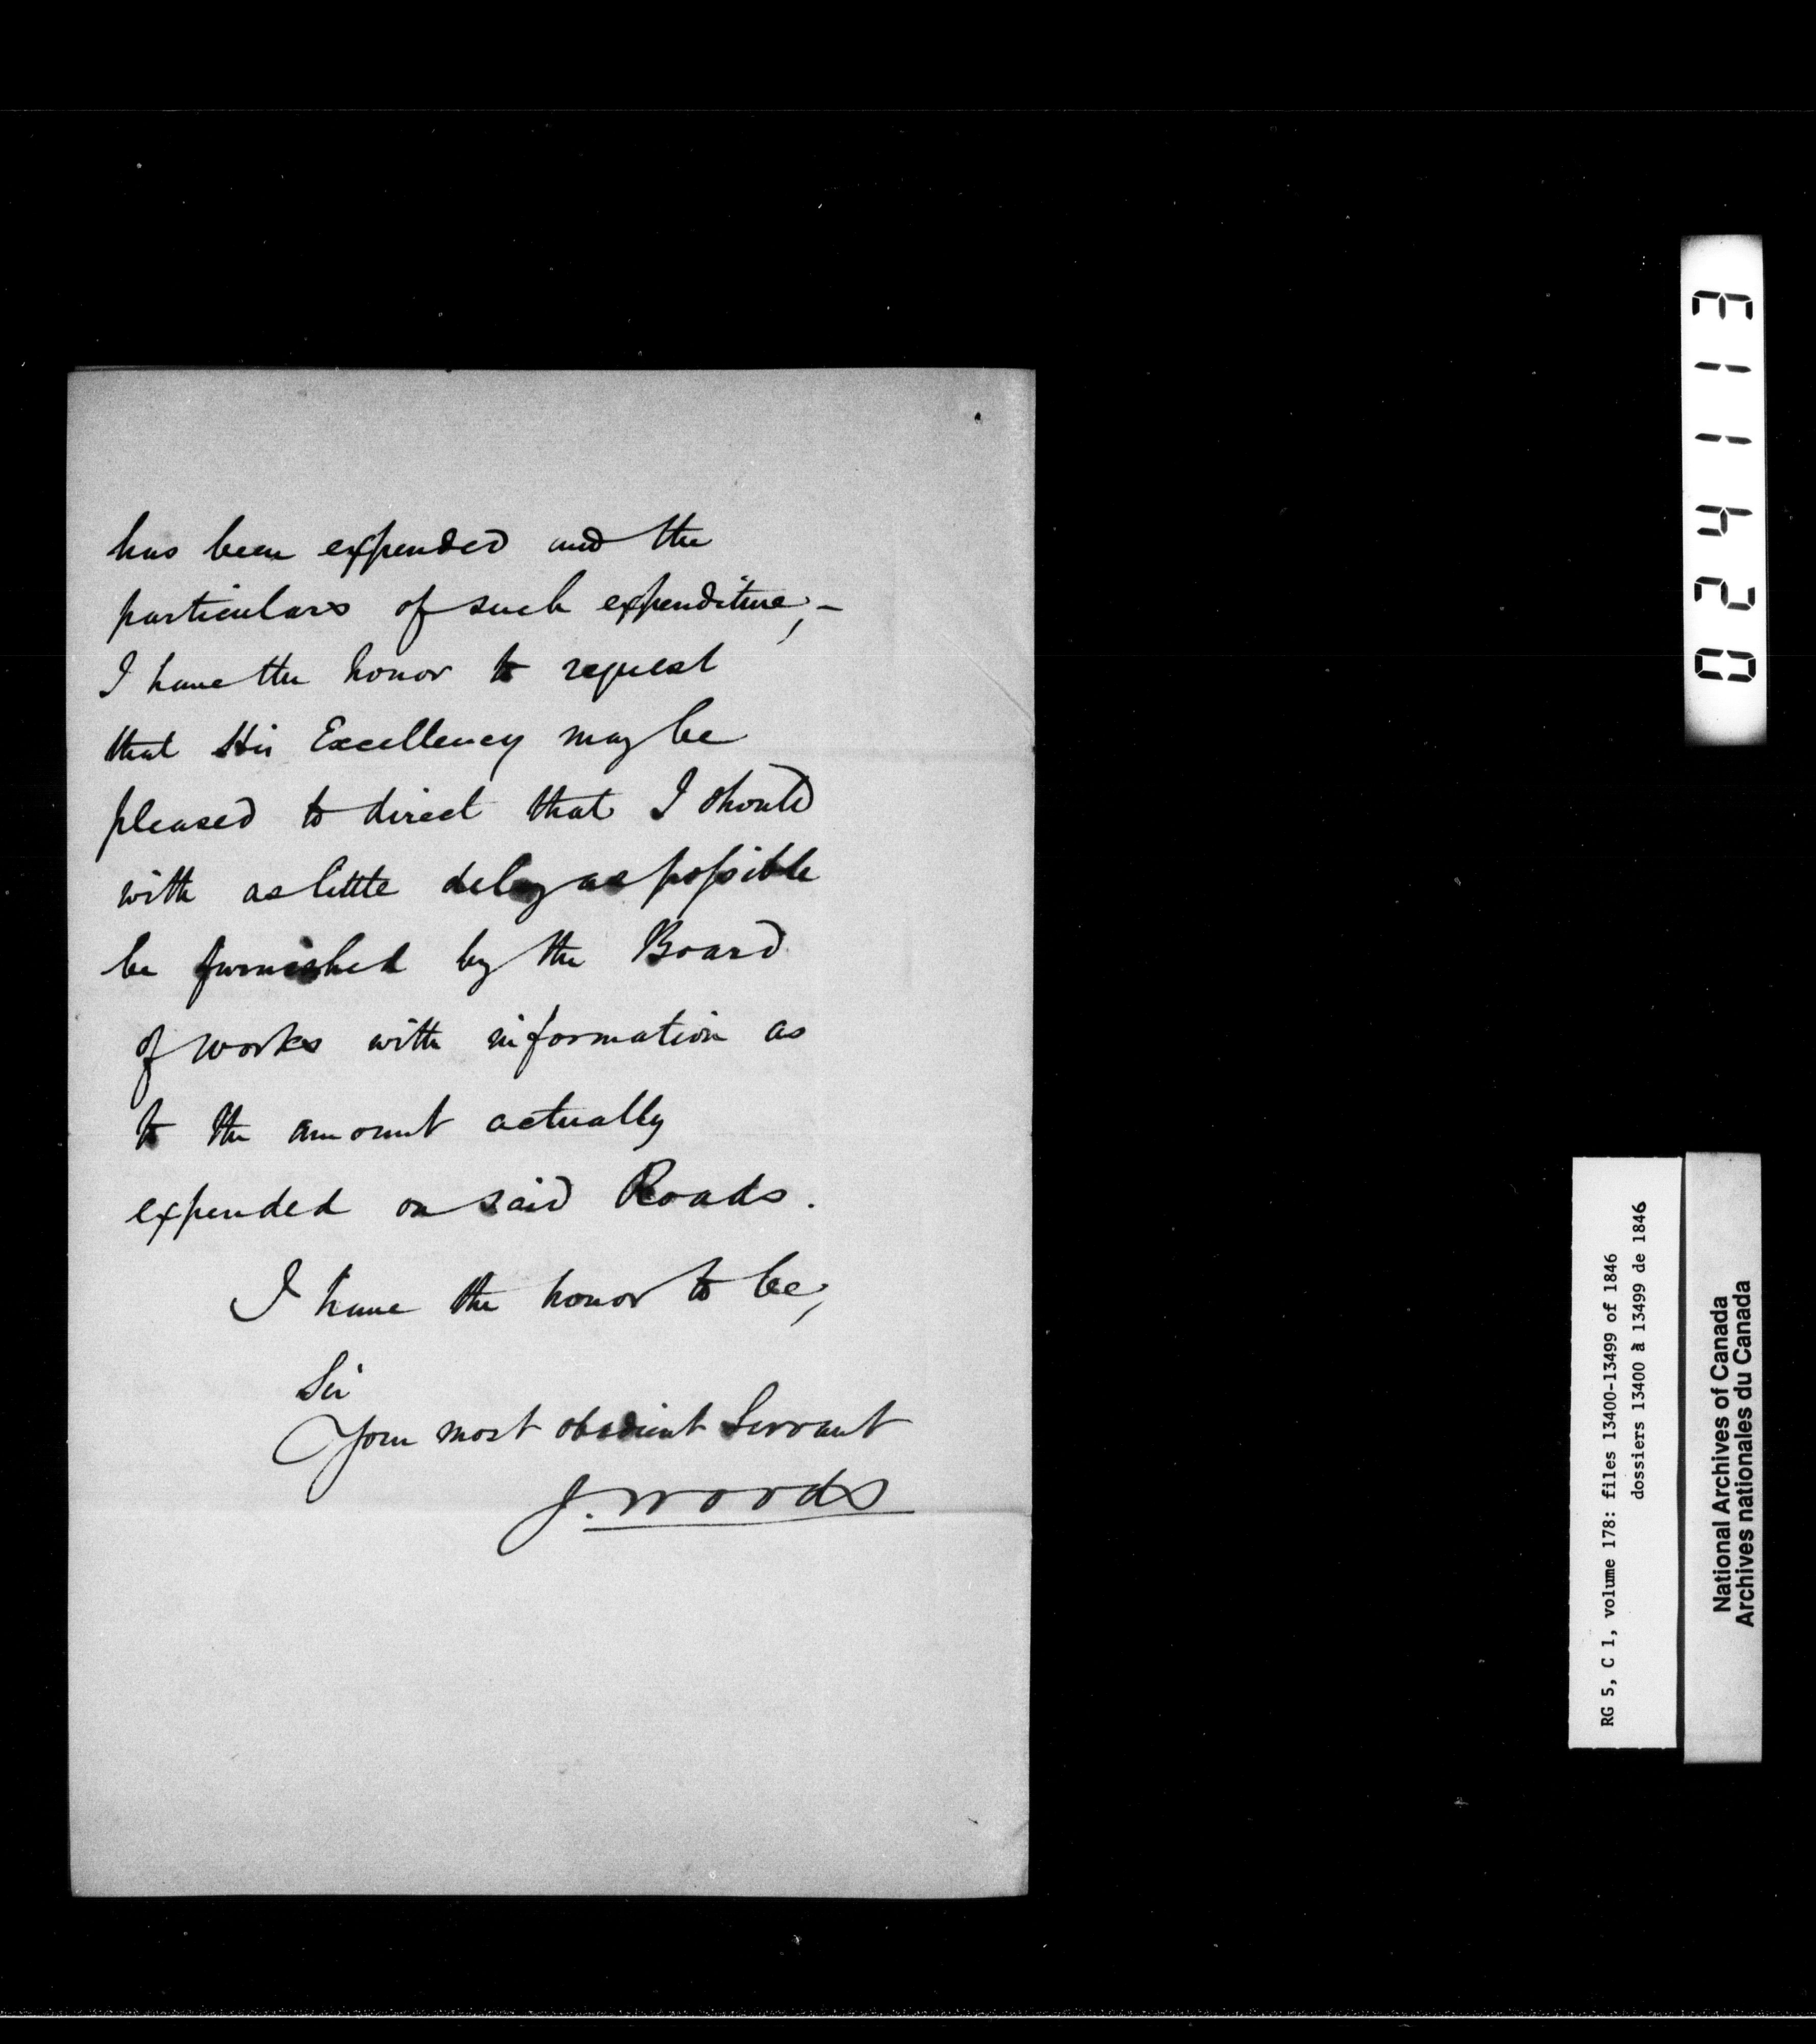 has been expended and the
particulars of such expenditure,-
I have the honor to request
that His Excellency may be
pleased to direct that I should
with as little delay as possible
be furnished by the Board
of works with information as
to the amount actually
expended on said Roads.
I have the honor to be,
Sir
Your most obedient Servant
J. Woods
024113
RG 5, C 1, volume 178: files 13400-13499 of 1846
dossiers 13400 à 13499 de 1846
National Archives of Canada
Archives nationales du Canada